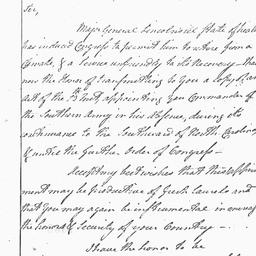 Sir,
Major General Lincolns ill state of health
has induced Congress to permit him to retire from a
Climate, & a Service unfriendly to its Recovery—
now the Honor of transmitting to You a copy of an
act of the instant appointing you Commander of
the Southern Army in his absence, during its
continuance to the Southward of North Carolina
& untill the further Order of Congress—
Accept my best wishes that this appoint
ment may be productive of fresh Laurels and
that you may again be instrumental in
the honor & Security of your Country—
I have the honor to be